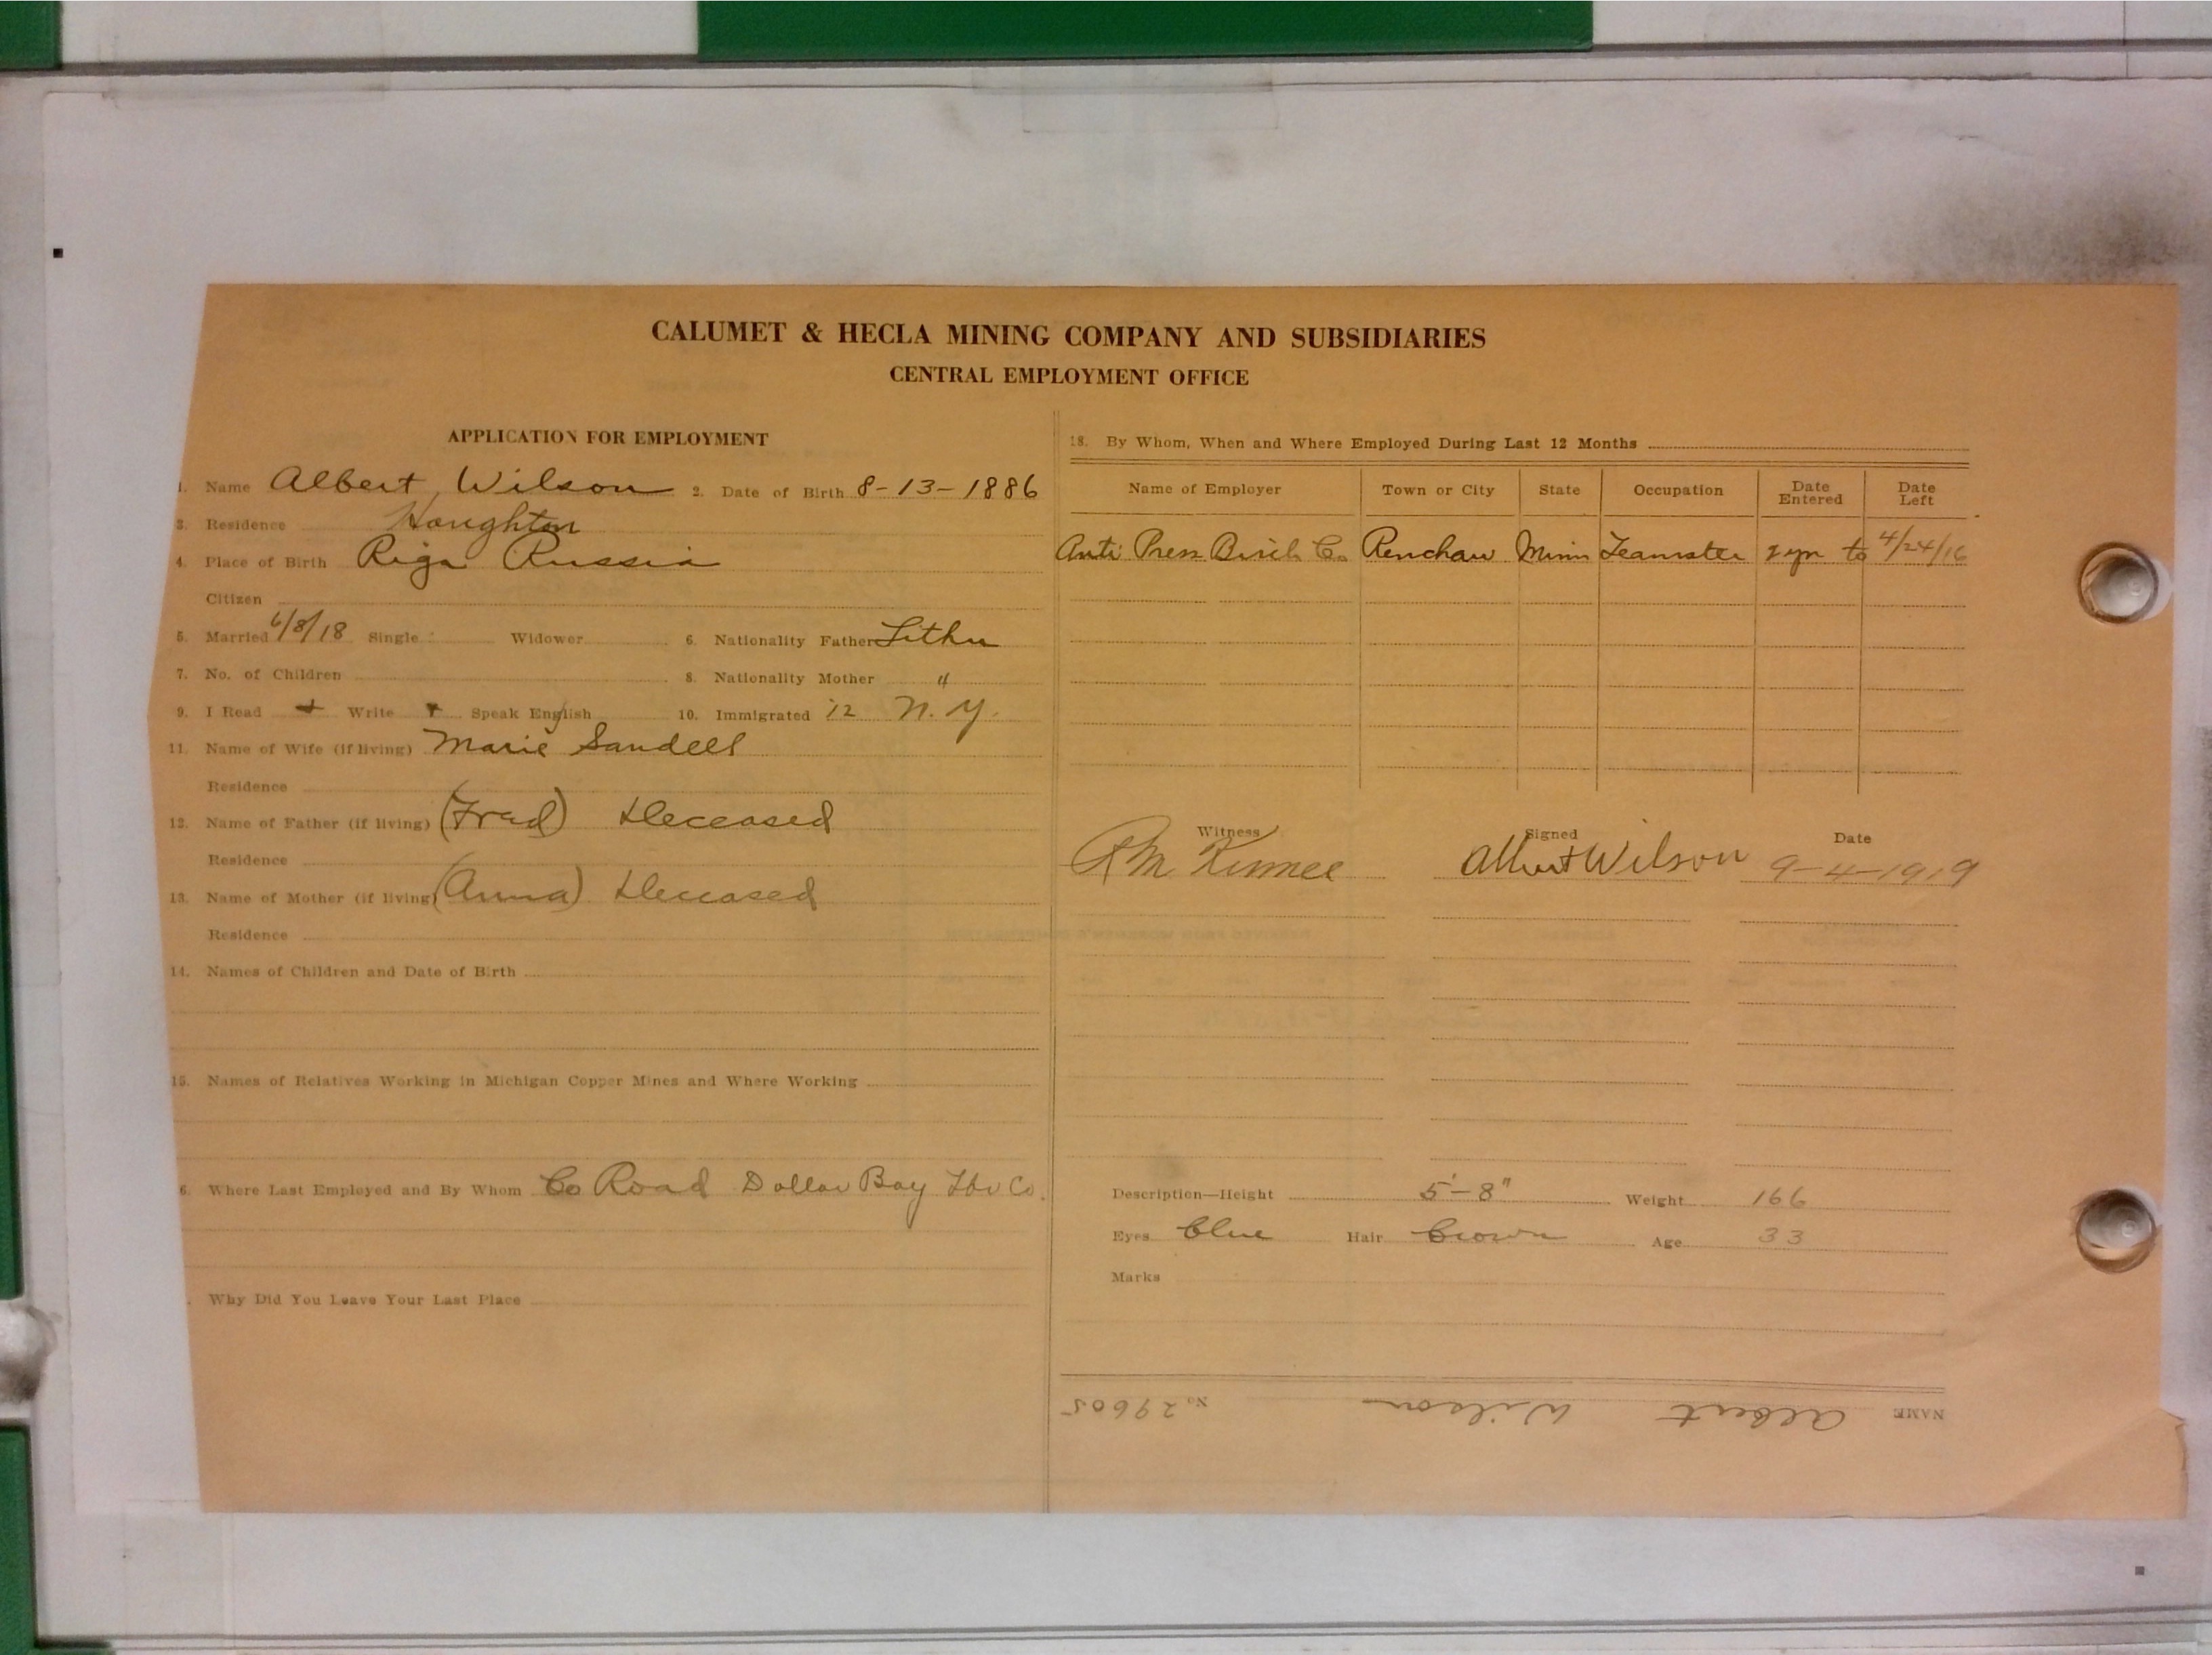 CALUMET & HECLA MINING COMPANY AND SUBSIDIARIES
CENTRAL EMPLOYMENT OFFICE
APPLICATION FOR EMPLOYMENT
1. Name Albert Wilson 2. Date of Birth 8-13-1886
3. Residence Houghton
4. Place of Birth Riga Russia
Citizen
5. Married 6/8/18 Single Widower 6. Nationality Father Lithu
7. No. of Children 8. Nationality Mother "
9. I Read + Write + Speak English 10. Immigrated 12 N.Y.
11. Name of Wife (if living) Marie Sandell
Residence
12. Name of Father (if living) (Fred) Deceased
Residence
13. Name of Mother (if living) (Anna) Deceased
Residence
14. Names of Children and Date of Birth
15. Names of Relatives Working in Michigan Copper Mines and Where Working
6. Where Last Employed and By Whom Co Road Dollar Bay Co.
. Why Did You Leave Your Last Place
18. By Whom, When and Where Employed During Last 12 Months
Name of Employer Town or City State Occupation Date Entered Date Left
Anti Press Co. Renchaw Minn Teamster 2 yrs to 4/24/16
Witness Signed Date
Albert Wilson 9-4-1919
Description—Height 5'-8" Weight 166
Eyes blue Hair brown Age 33
Marks
NAME Albert Wilson No 29605